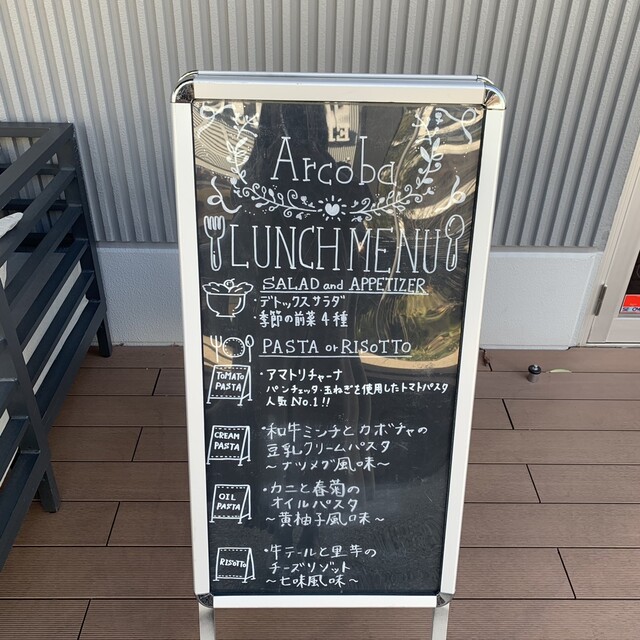 Arcoba
LUNCH MENU
SALAD and APPETIZER
・デトックスサラダ
季節の前菜4種
PASTA or RISOTTO
TOMATO
PASTA
・アマトリチャーナ
パンチェッタ・玉ねぎを使用したトマトパスタ
人気No.1!!
CREAM
PASTA
・和牛ミンチとカボチャの
豆乳クリームパスタ
～ナツメグ風味～
OIL
PASTA
・カニと春菊の
オイルパスタ
～黄柚子風味～
RISOTTO
・牛テールと里芋の
チーズリゾット
～七味風味～